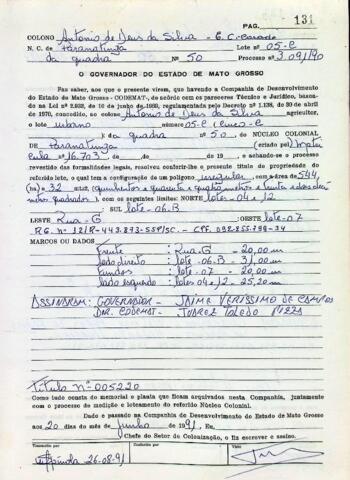 PAG. 131
COLONO Antônio de Deus da Silva - E. C=Casado
N. C. de Paranatinga Lote nº 05-C
da quadra nº 50 Processo nº 3.091/90
O GOVERNADOR DO ESTADO DE MATO GROSSO
Faz saber, aos que o presente virem, que havendo a Companhia de Desenvolvimento
do Estado de Mato Grosso - CODEMAT-, de acôrdo com os pareceres Técnico e Jurídico, basea-
do na Lei nº 2.938, de 1º de junho de 1969, regulamentado pelo Decreto nº 1.138, de 30 de abril
de 1970, concedido, ao colono Antônio de Deus da Silva agricultor,
o lote urbano número 05-C (cinco-C
) da quadra nº 50. DO NÚCLEO COLONIAL
DE Paranatinga criado por(Matri
cula nº 16.703 de de de 19 , e achando-se o processo
revestido das formalidades legais, resolveu conferir-lhe o presente título de propriedade do
referido lote, o qual tem a configuração de um polígono irregular com a área de 544,
(ha) = 32 mts2 (quinhentos e quarenta e quatro metros e trinta e dois deci
metros quadrados), com os seguintes limites: NORTE lote-04 e 12
; SUL lote-06.B
LESTE Rua-G ; OESTE lote-07
RG. nº 12/R-443.893-SSP/SC. - CPF. 032.855.799-34
MARCOS OU DADOS
Frente : Rua-G - 20,00 m
lado direito : lote-06.B - 31,00 m
fundos : lote-07 - 20,00 m
lado esquerdo : lotes 04 e 12 - 25,20 m
ASSINARAM: GOVERNADOR - JAIME VERISSIMO DE CAMPOS
DIR. CODEMAT- JUAREZ TOLEDO PIZZA
Título nº 005220
Como tudo consta do memorial e planta que ficam arquivados nesta Companhia, juntamente
com o processo de medição e loteamento do referido Núcleo Colonial.
Dado e passado na Companhia de Desenvolvimento do Estado de Mato Grosso
aos 20 dias do mês de junho de 1991, Eu,
Chefe do Setor de Colonização, o fiz escrever e assino.
26-08-91